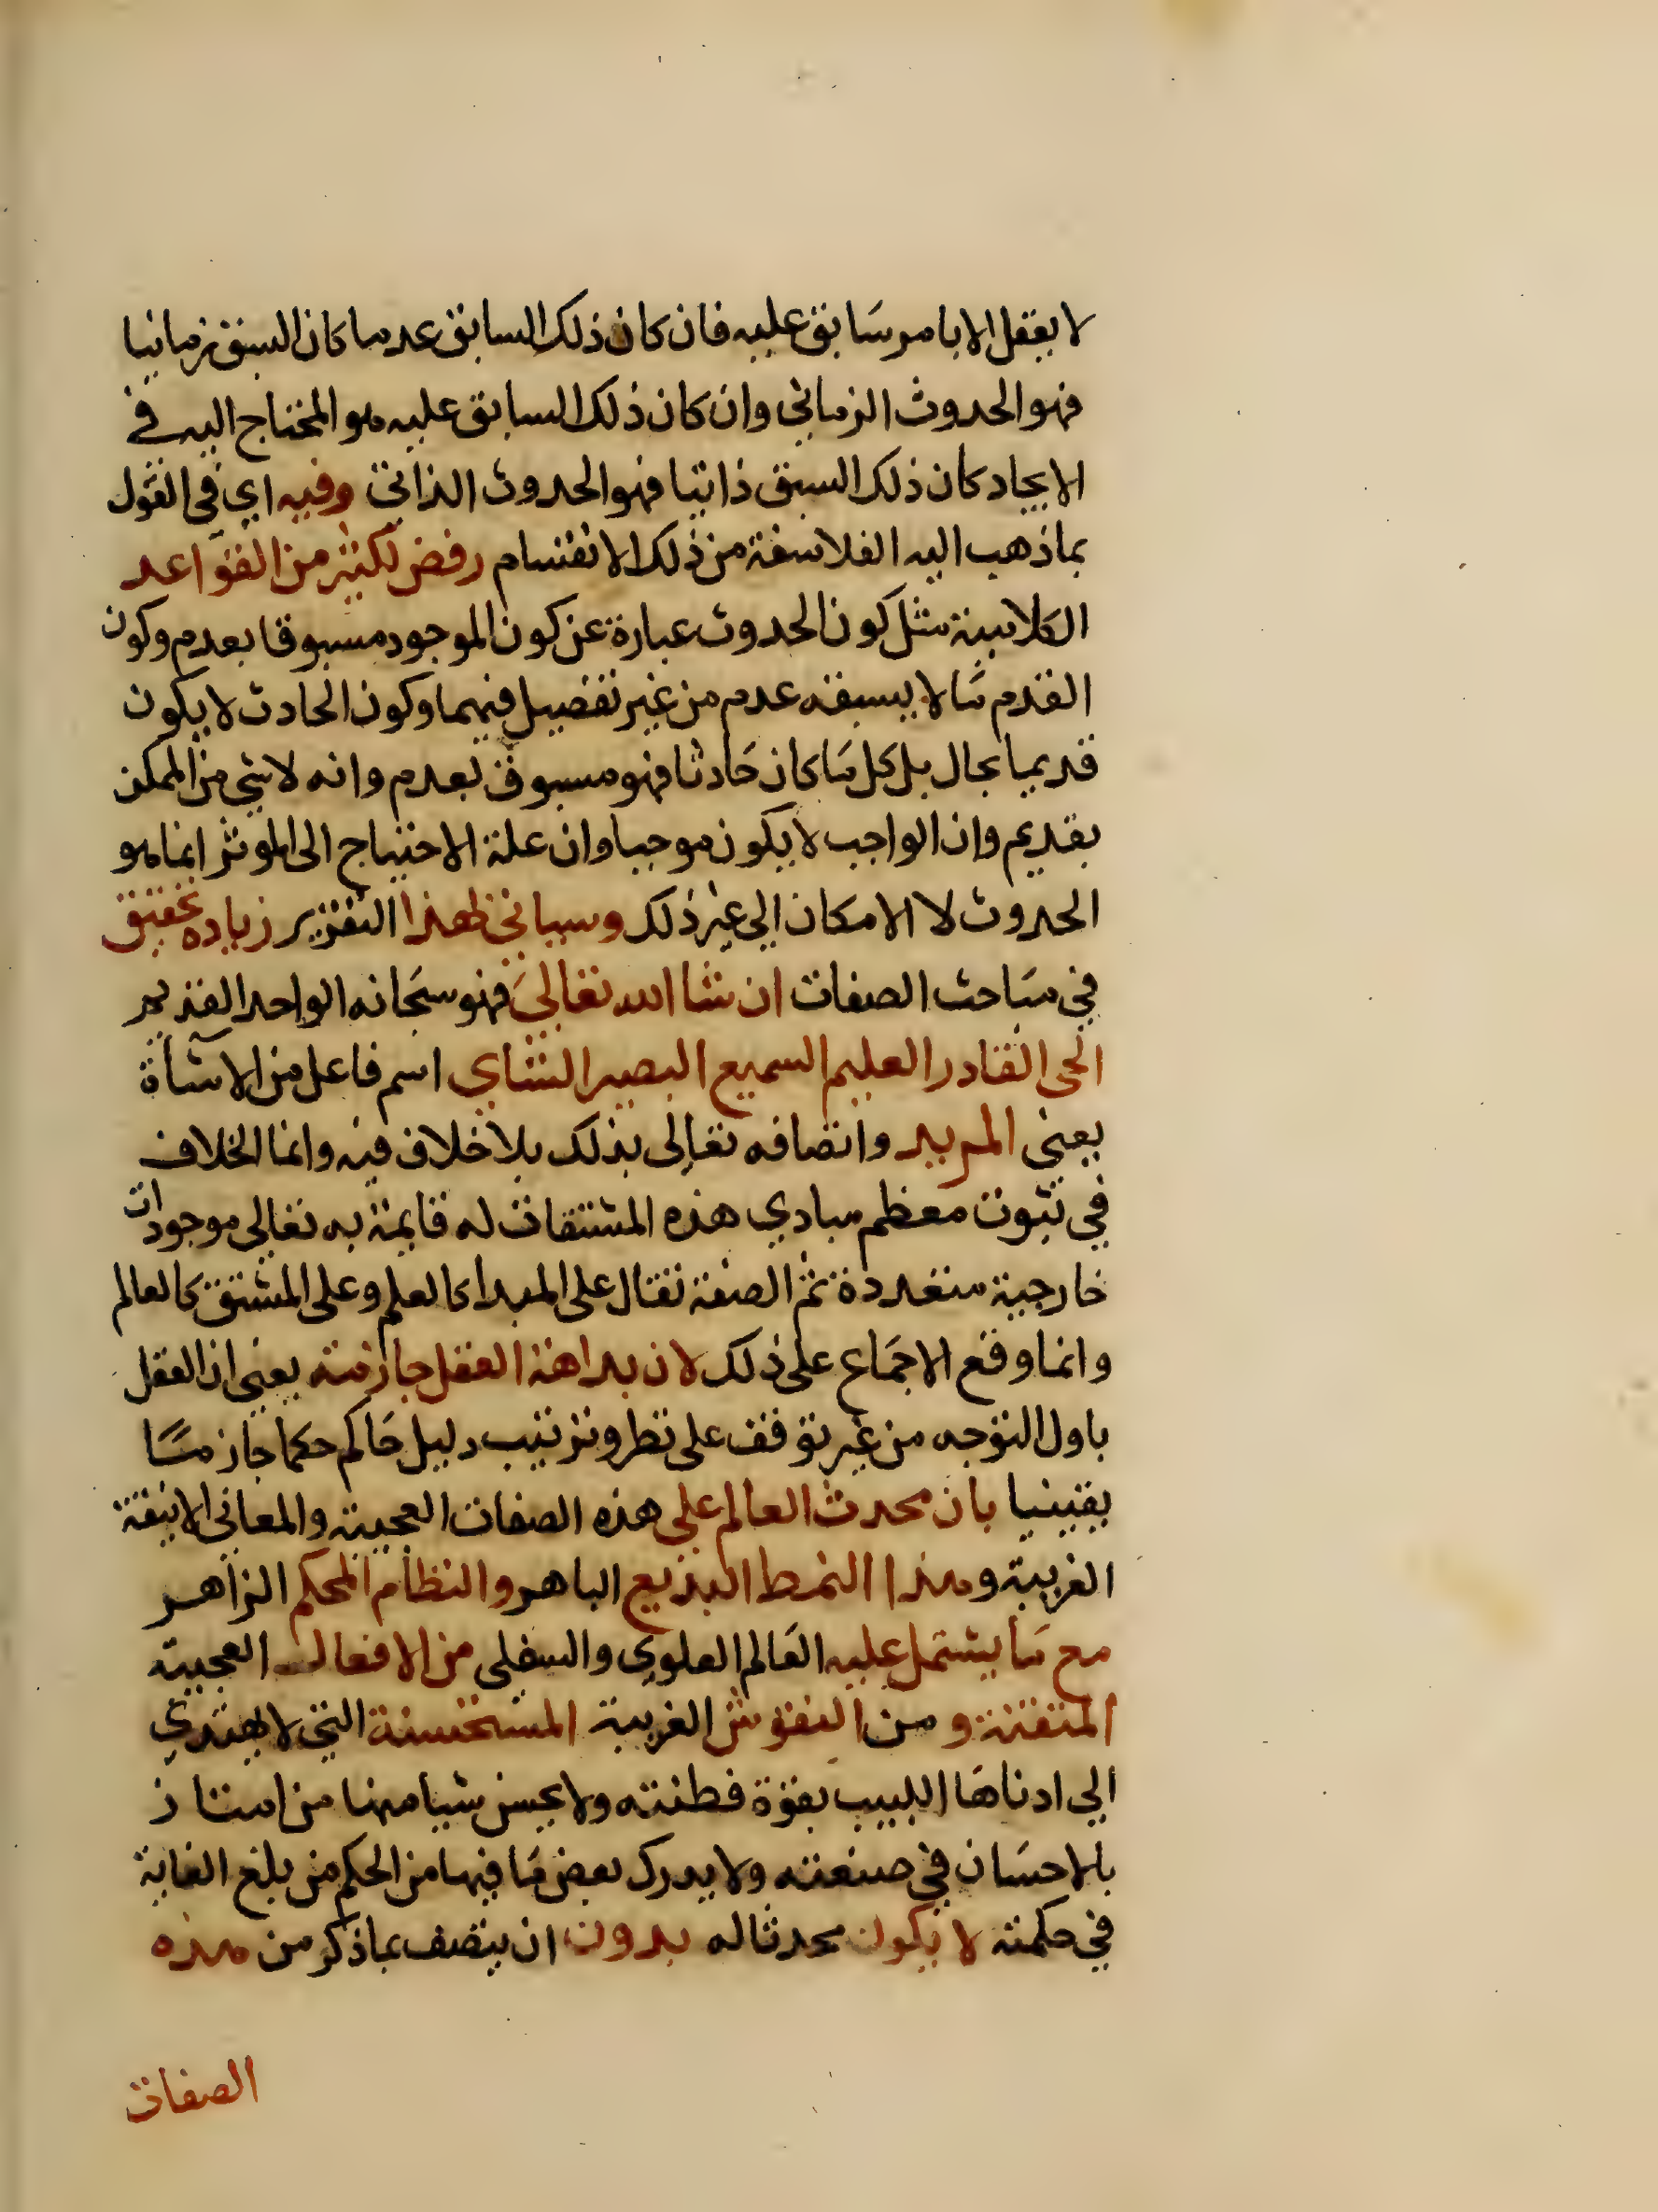 لا يعقل الا بامر سابق عليه فان كان ذلك السابق عدما كان السبق زمانيا
فهو الحدوث الزماني وان كان ذلك السابق عليه هو المحتاج اليه في
الايجاد كان ذلك السبق ذاتيا فهو الحدوث الذاتي وفيه اي في القول
بما ذهب اليه الفلاسفة من ذلك الانقسام رفض لكثير من القواعد
الكلامية مثل كون الحدوث عبارة عن كون الموجود مسبوقا بعدم وكون
القدم ما لا يسبقه عدم من غير تفصيل فيهما وكون الحادث لا يكون
قديما بحال بل كل ما كان حادثا فهو مسبوق بعدم وانه لا شي من الممكن
بقديم وان الواجب لا يكون موجبا وان علة الاحتياج الى الموثر انما هو
الحدوث لا الامكان الي غير ذلك وسياتي لهذا التقرير زيادة تحقيق
في مباحث الصفات ان شا الله تعالي فهو سبحانه الواحد القديم
الحي القادر العليم السميع البصير الشاي اسم فاعل من الاشآة
يعني المريد واتصافه تعالى بذلك بلا خلاف فيه وانما الخلاف
في ثبوت معظم مبادي هذه المشتقات له قايمة به تعالي موجودات
خارجية متعددة ثم الصفة تقال على المبدا كالعلم وعلى المشتق كالعالم
وانما وقع الاجماع على ذلك لان بداهة العقل جازمة يعني ان العقل
باول التوجه من غير توقف على نظر وترتيب دليل حاكم حكما جازما
يقينيا بان محدث العالم علي هذه الصفات العجيبة والمعاني الانيقة
الغريبة وهذا النمط البديع الباهر والنظام المحكم الزاهر
مع ما يشتمل عليه العالم العلوي والسفلي من الافعال العجيبة
المتقنة و من النقوش الغريبة المستحسنة التي لا يهتدي
الي ادناها اللبيب بقوة فطنته ولا يحسن شيا منها من امتاز
بالاحسان في صنعته ولا يدرك بعض ما فيها من الحكم من بلغ الغاية
في حكمته لا يكون محدثا له بدون ان يتصف بما ذكر من هذه
الصفات